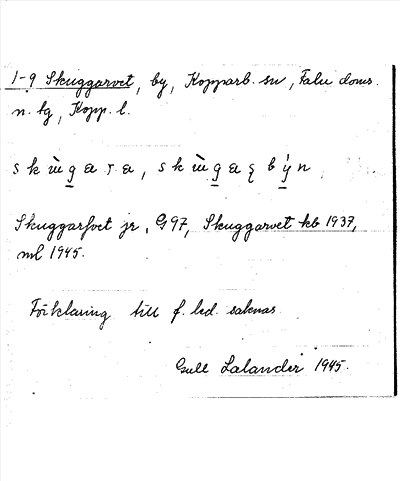 1-9 Skuggarvet, by, Kopparb. sn, Falu doms.
n. tg, Kopp. l.
Skuggarfvet jr, G97, Skuggarvet kb 1937,
ml 1945.
Förklaring till f. led. saknas.
Gull Lalander 1945.